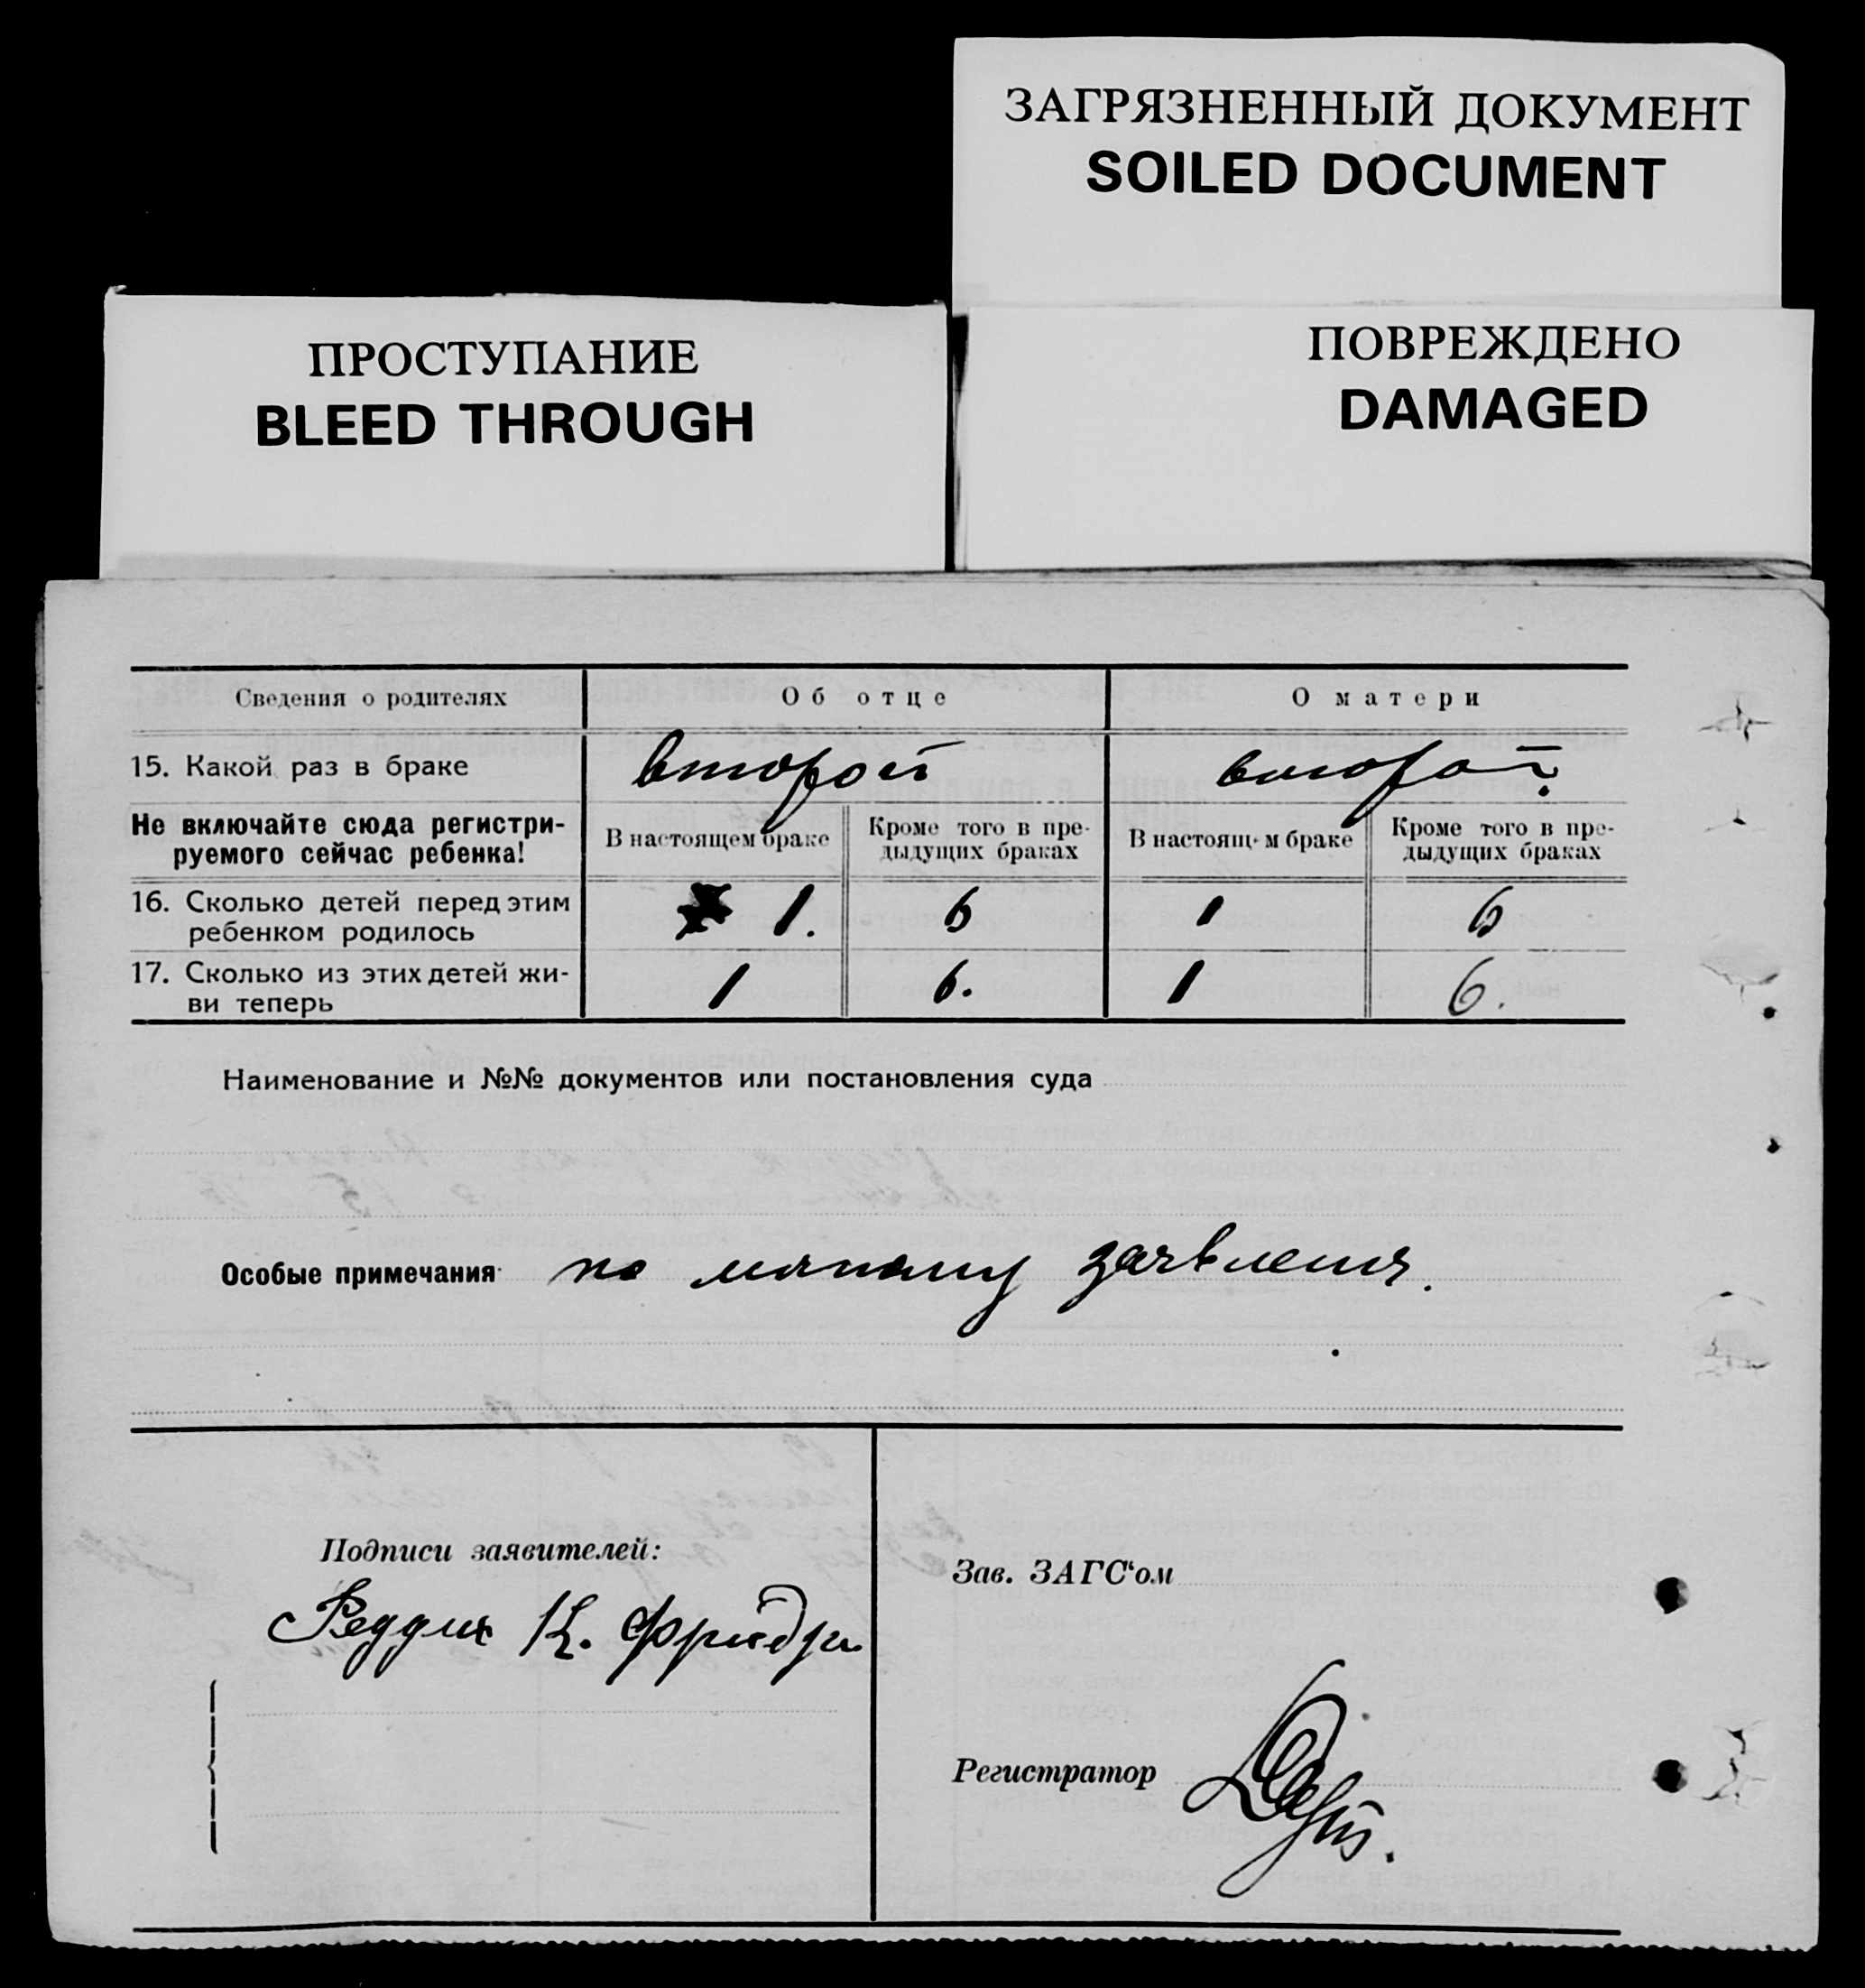 ЗАГРЯЗНЕННЫЙ ДОКУМЕНТ
SOILED DOCUMENT
ПРОСТУПАНИЕ
BLEED THROUGH
ПОВРЕЖДЕНО
DAMAGED
Сведения о родителях Об отце О матери
15. Какой раз в браке второй второй
Не включайте сюда регистри-
руемого сейчас ребенка!
В настоящем браке
Кроме того в пре-
дыдущих браках
В настоящем браке
Кроме того в пре-
дыдущих браках
16. Сколько детей перед этим
ребенком родилось 1. 6 1 6
17. Сколько из этих детей жи-
ви теперь 1 6. 1 6.
Наименование и №№ документов или постановления суда
Особые примечания по заявления.
Подписи заявителей:
К.
Зав. ЗАГС‘ом
Регистратор